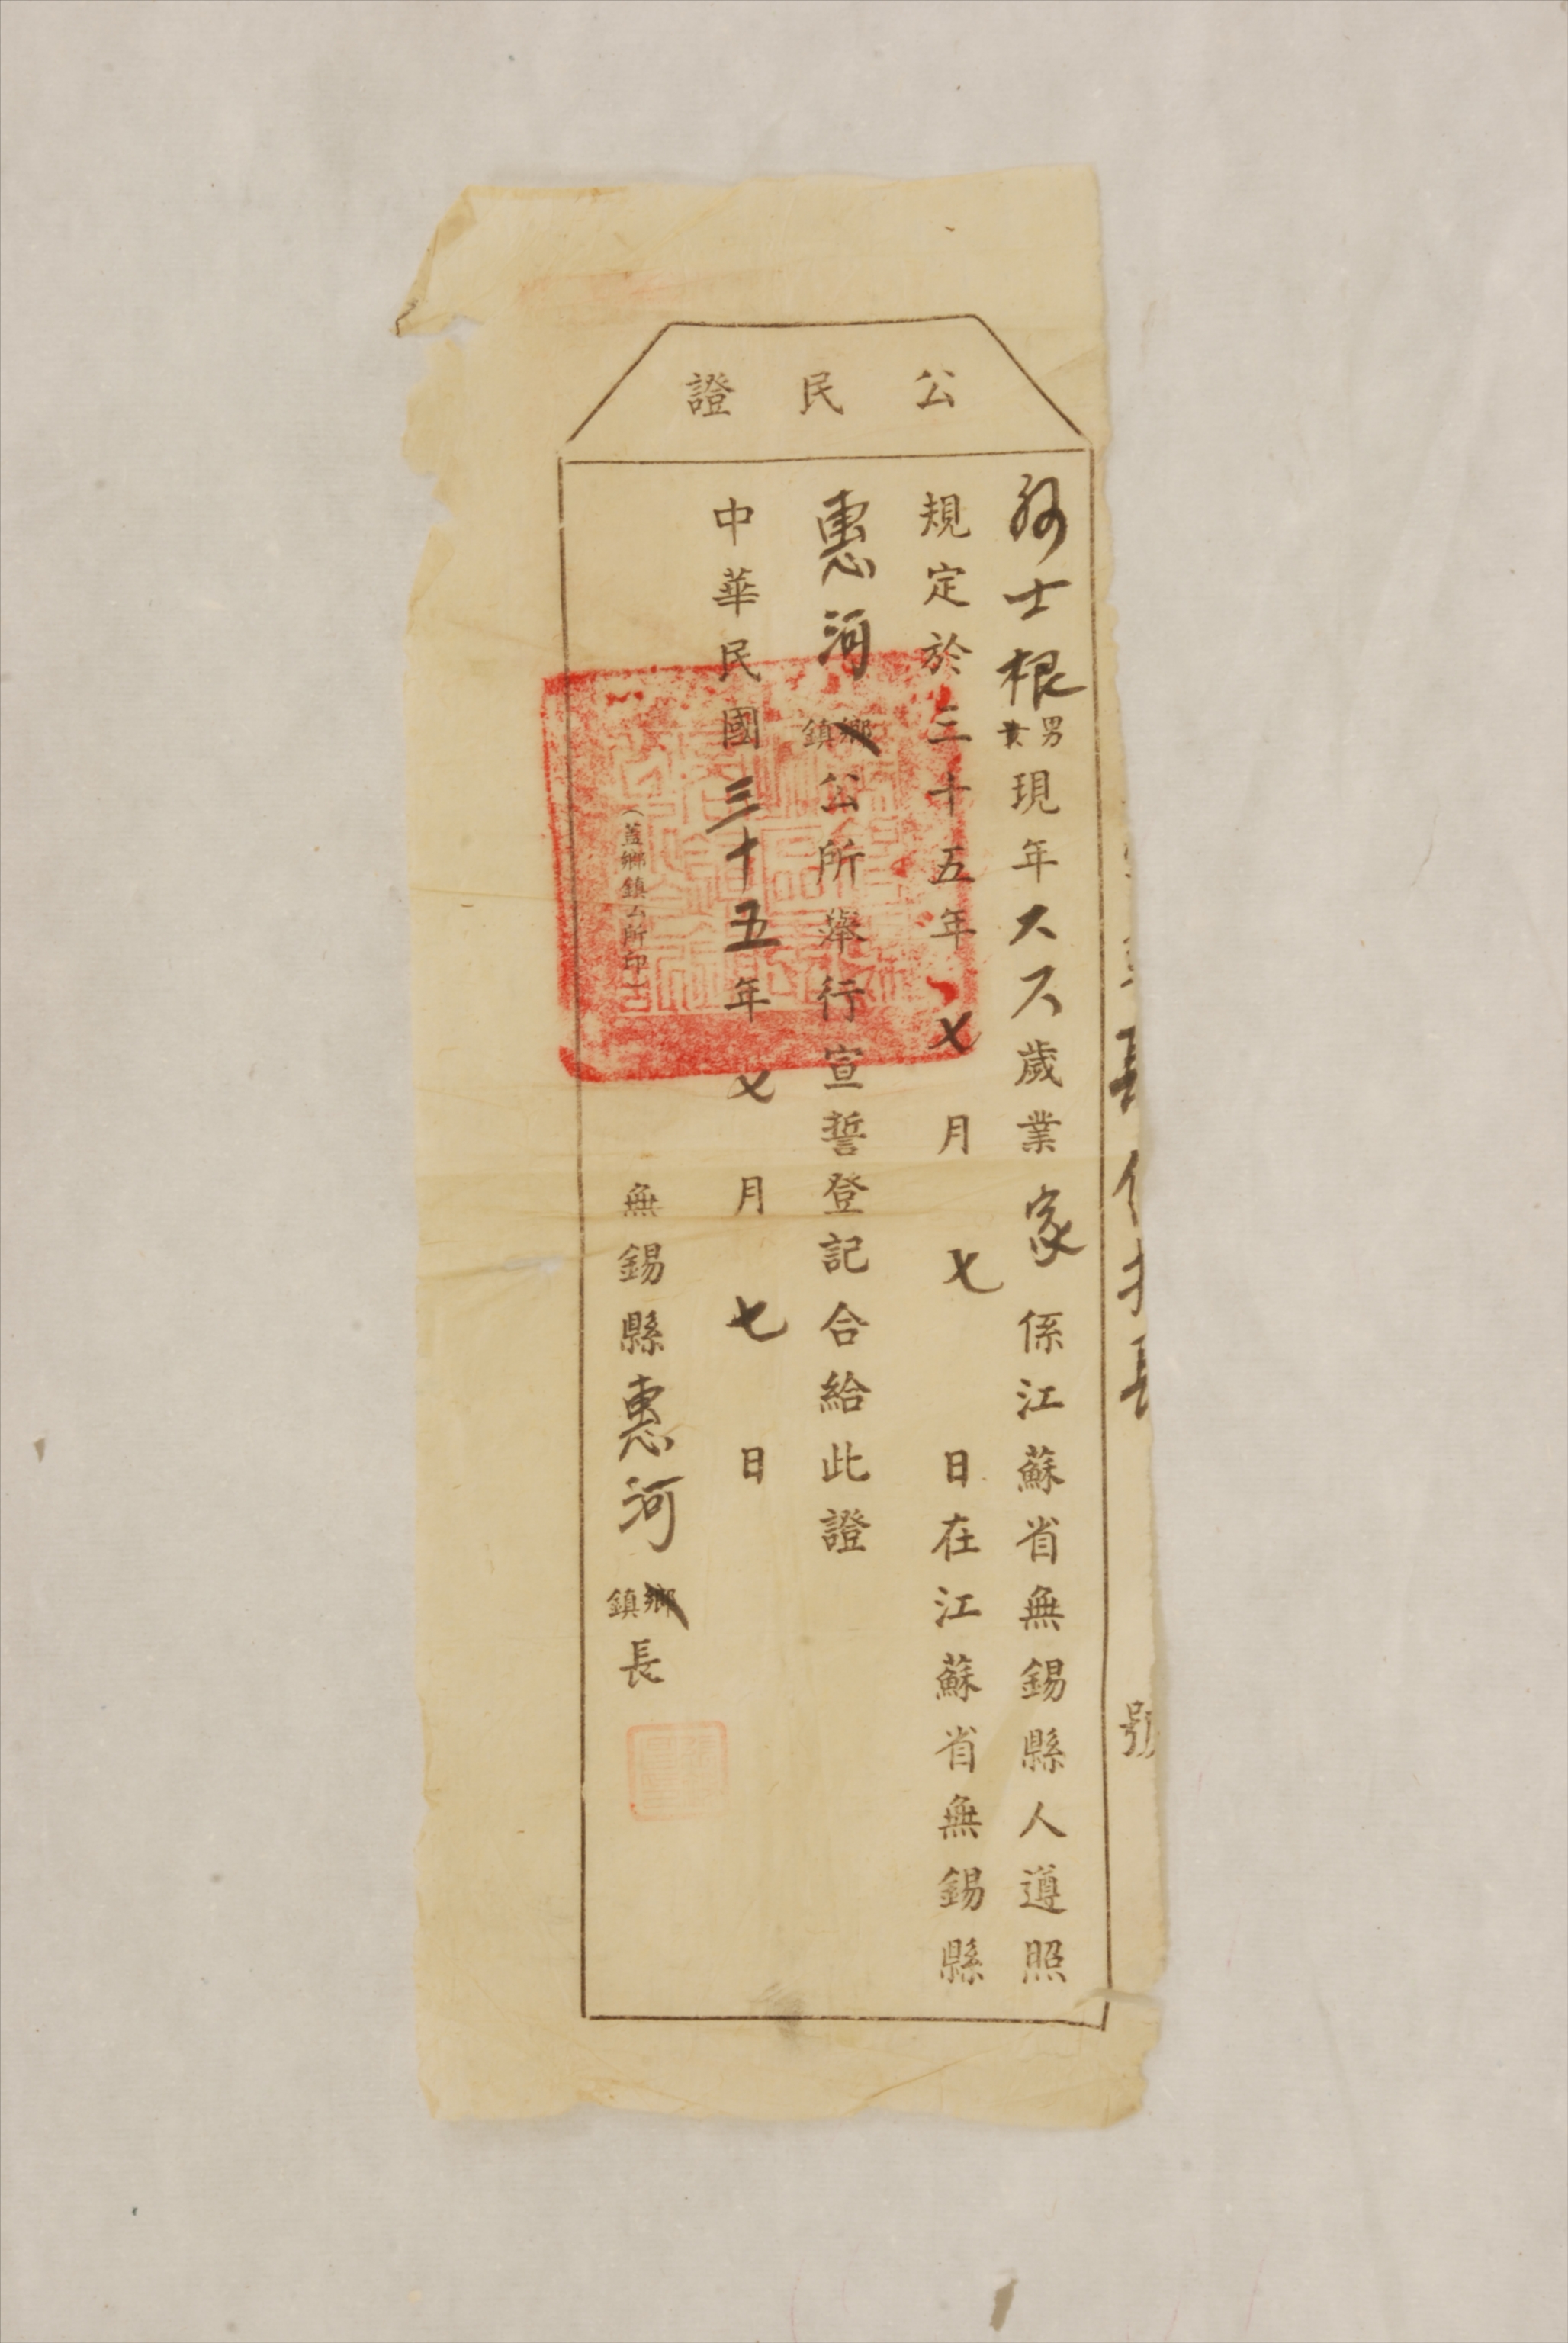 公民證
士根男現年歲業家係江蘇省無錫縣人遵照
規定於三十五年七月七日在江蘇省無錫縣
惠河鄉鎮公所舉行宣誓登記合給此證
中華民國三十五年七月七日
（蓋鄉鎮公所印）
無錫縣惠河鄉鎮長
號